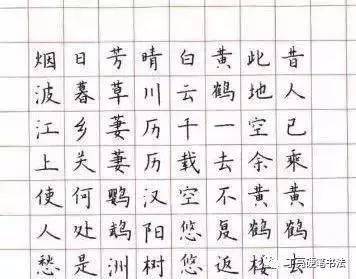 昔人已乘黄鹤
此地空余黄鹤楼
黄鹤一去不复返
白云千载空悠悠
晴川历历汉阳树
芳草萋萋鹦鹉洲
日暮乡关何处是
烟波江上使人愁
硬笔书法